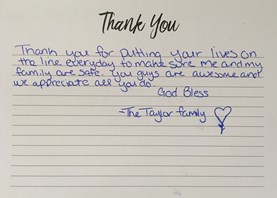 Thank You
Thank you for putting your lives on
the line everyday to make sure me and my
family are safe. You guys are awesome and
we appreciate all you do.
God Bless
-The Taylor family